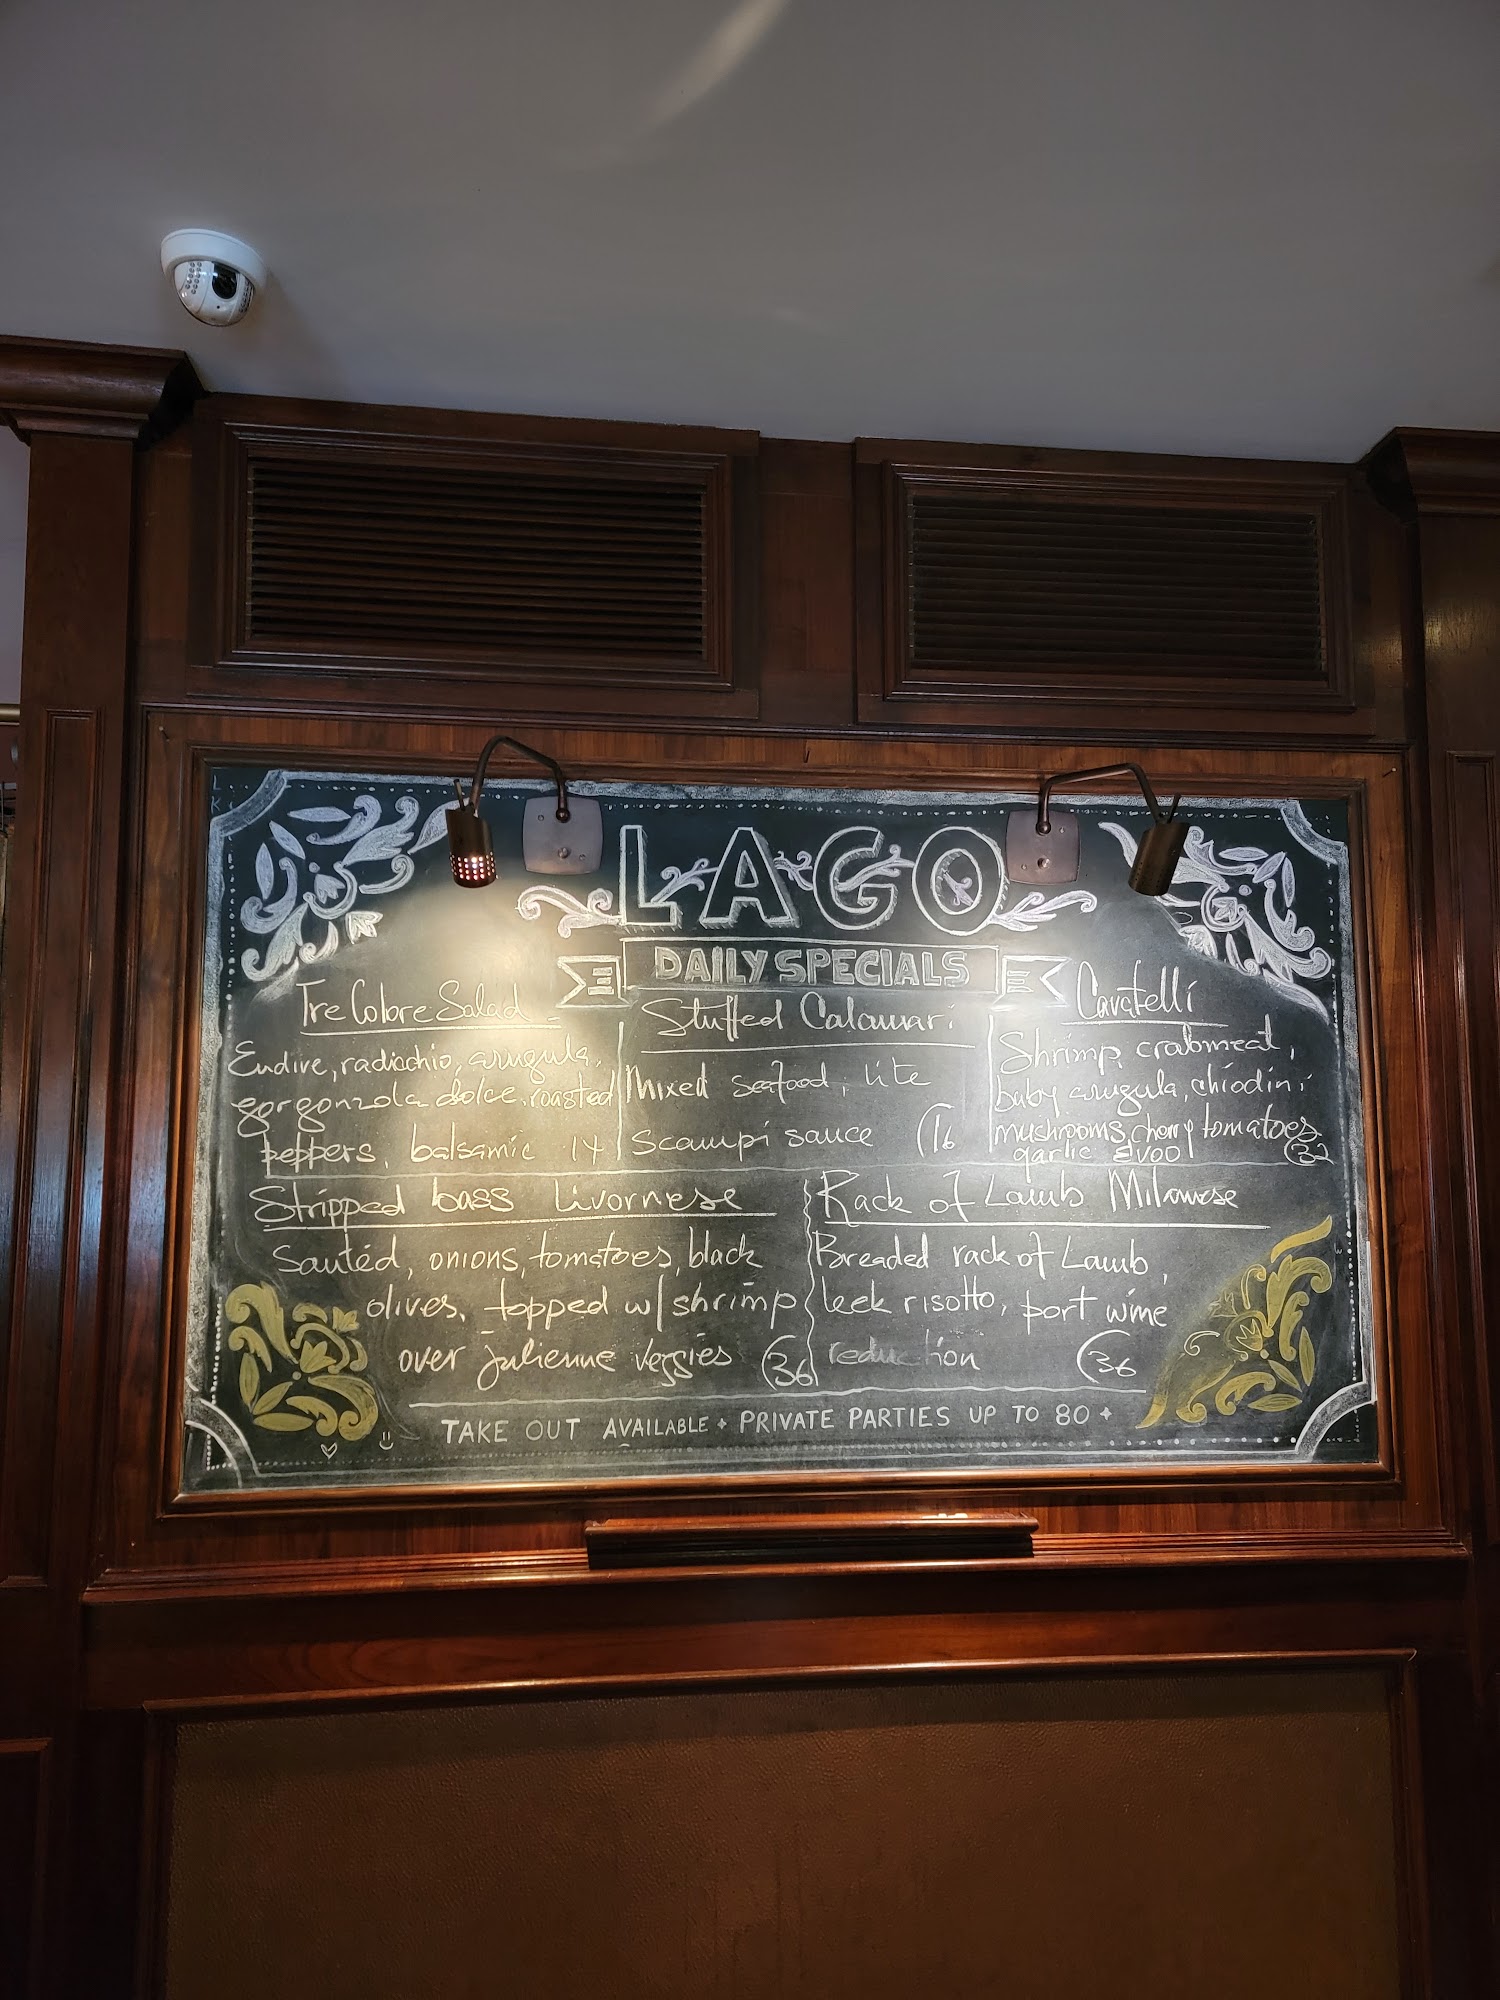 LAGO
DAILY SPECIALS
Tre Colore Salad
Endive, radiochio, arugula,
gorgonzola dolce, roasted
peppers, balsamic 14
Stuffed Calamari
Mixed seafood, lite
scampi sauce 16
Cavatelli
Shrimp, crabmeat,
baby arugula, chiodini
mushrooms, cherry tomatoes
garlic evoo 32
Stripped bass Livornese
Sautéd, onions, tomatoes, black
olives, topped w/shrimp
over julienne veggies 36
Rack of Lamb Milanese
Breaded rack of Lamb,
leek risotto, port wine
reduction 36
TAKE OUT AVAILABLE + PRIVATE PARTIES UP TO 80 +